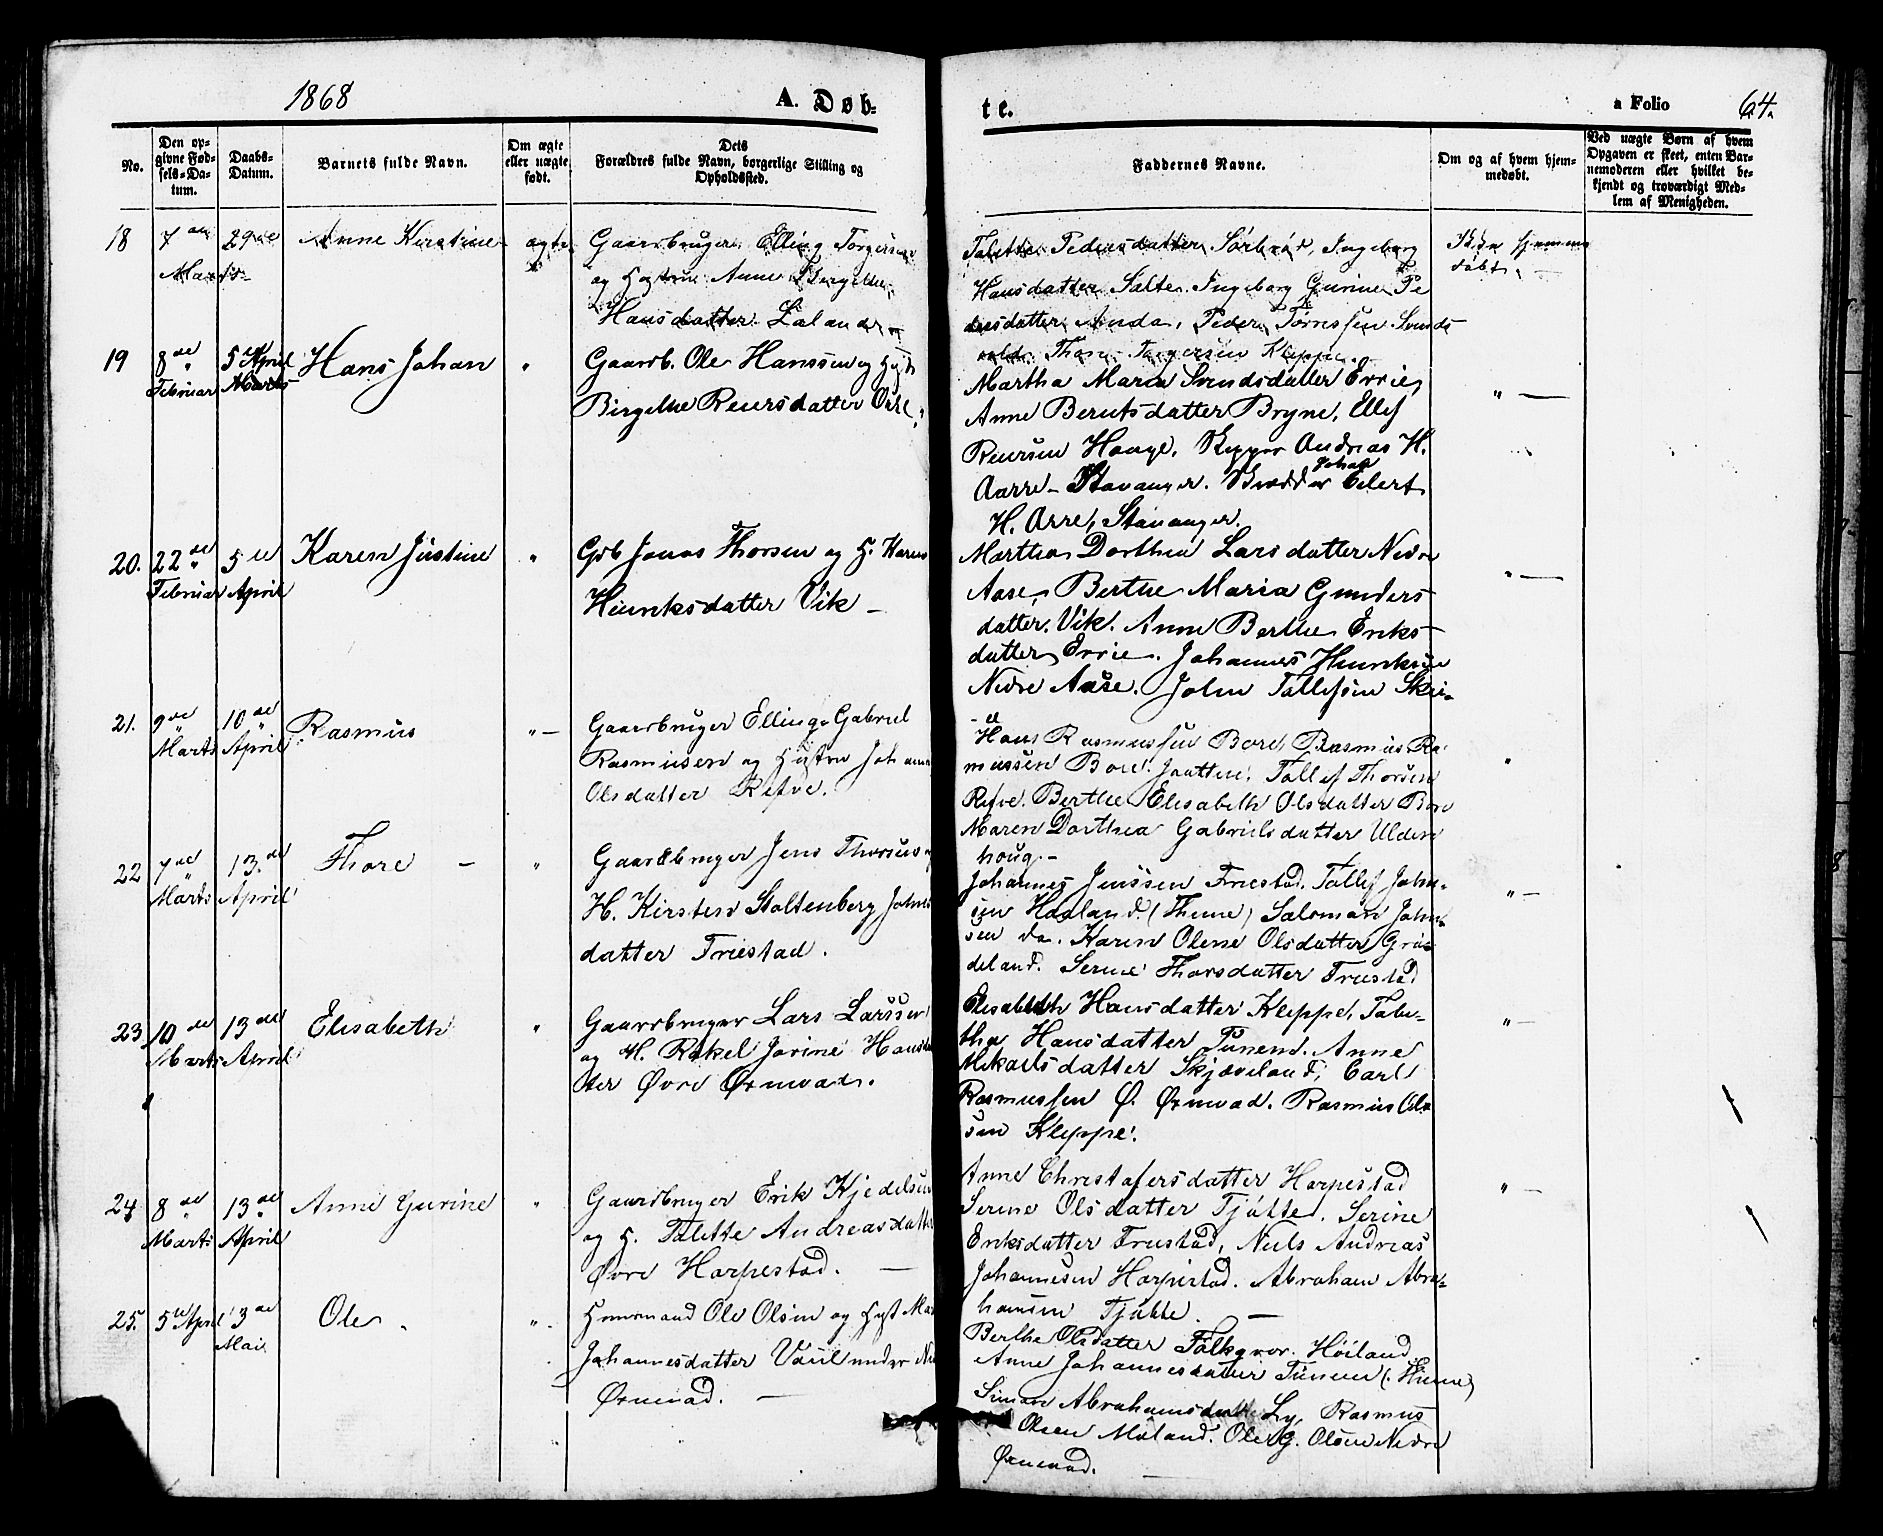 1868
A. Døb-
te.
a Folio 64.
No.
Den op-
givne Fød-
sels-Da-
tum.
Daabs-
Datum.
Barnets fulde Navn.
Om ægte
eller uægte
født.
Dets
Forældres fulde Navn, borgerlige Stilling og
Opholdssted.
Faddernes Navne.
Om og af hvem hjem-
medøbt.
Ved uægte Børn af hvem
Opgaven er skeet, enten Bar-
nemoderen eller hvilket be-
kjendt og troværdigt Med-
lem af Menigheden.
18 7de Marts 29de Anne Kirstine ægte
Gaardbruger Elling Torgersen
og Hustru Anne Birgithe
Hansdatter Laland
Talette Pedersdatter Sørbrød, Ingeborg
Hansdatter Salte. Ingeborg Gurine Pe
dersdatter Anda, Peder Tørressen Svinds
vold. Thore Torgersen Kleppe.
Ikke hjemme
døbt.
19 8de Februar 5te April Marts Hans Johan "
Gaardb. Ole Hanssen og Hust
Birgithe Reiersdatter Orre
Martha Maria Svendsdatter Errie,
Anne Berntsdatter Bryne, Ellef
Reiersen Hauge. Skipper Andreas H.
Aarre - Stavanger. Brødder Johan Eilert
H. Arre, Stavanger.
" —
20. 22de Februar 5te April Karen Justine "
Gdb Jonas Thorsen og H. Karen
Hinriksdatter Vik -
Marthea Dorthea Larsdatter Nedre
Aase, Berthe Maria Gunders-
datter. Vik. Anne Berthe Eriks-
datter Errie. Johannes Hinriksen
Nedre Aase. John Tollefsen Skei-
" —
21. 9de Marts 10de April Rasmus " -
Gaardbruger Elling Gabriel
Rasmusen og Hustru Johanne
Olsdatter Refve.
Hans Rasmussen Bore, Rasmus Ra
mussen Bore. Jaatten. Tollef Thorsen
Refve. Berthe Elisabeth Olsdatter Bore
Maren Dorthea Gabrielsdatter Ulden
houg. -
"
22 7de Marts 13de April Thore - "
Gaardbruger Jens Thorsen og
H. Kirsten Stoltenberg Johns
datter Friestad.
Johannes Jenssen Friestad. Tollef John-
sen Haaland (Thime) Salomon John-
sen do. Karen Olene Olsdatter Gru-
deland. Serine Thorsdatter Friestad
" —
23 10de Marts 13de April Elisabeth "
Gaardbruger Lars Larssen
og H. Rakel Jorine Hansdat
ter Øvre Ørnvad.
Elisabeth Hansdatter Kleppe. Tabi-
tha Hansdatter Tunem. Anne
Mikaelsdatter Skjæveland, Carl
Rasmussen Ø. Ørnvad. Rasmus Ole
sen Kleppe.
" —
24 8de Marts 13de April Anne Gurine "
Gaardbruger Erik Kjedelsen
og H. Talette Andreasdatter
Øvre Horpestad. —
Anne Christofersdatter Horpestad
Serine Olsdatter Tjøtte. Serine
Eriksdatter Friestad, Niels Andreas
Johannesen Horpestad. Abraham Abra-
hamsen Tjøtte. —
" —
25. 5te April 3de Mai Ole "
Huusmand Ole Olsen og Hust Mar
Johannesdatter Vaul under Ne
Ørnvad. —
Berthe Olsdatter Folkvor. Høiland
Anne Johannesdatter Tunem (Hinne)
Simon Abrahamsdatter Ly, Rasmus
Olsen Møland. Ole G. Olsen Nedre
Ørnevad. —